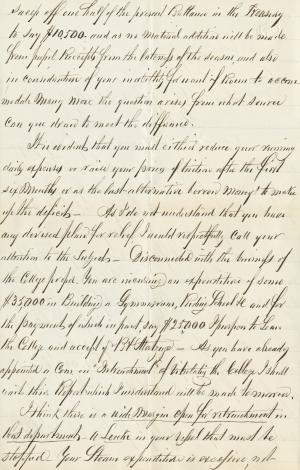 sweep off one half of the present Ballance in the Treasury
to say $10,500. and as no material addition will be made
from pupil Receipts from the lateness of the season, and also
in consideration of your inability for want of Room to accom
modate many more the question arises from what source
can you draw to meet the difference.
It is evident that you must either reduce your running
daily expenses, or raise your price of tuition after the first
six months or as the last alternative borrow money to make
up the deficit — As I do not understand that you have
any devised plan for relief I would respectfully call your
attention to the Subject — Disconnected with the business of
the College proper. You are incurring an expenditure of some
$35,000 in Building a Gymnasium, Riding School &c and for
the payment of which in part, say $25,000 I purpose to Loan
the College and accept of Bd Mortgage — As you have already
appointed a Com. on "Retrenchment" of the College I shall
wait their Report which I understand will be made tomorrow.
I think there is a wide Margin open for retrenchment in
that department — A Leake in your vessel that must be
stopped. Your Steam expenditure is excessive, not